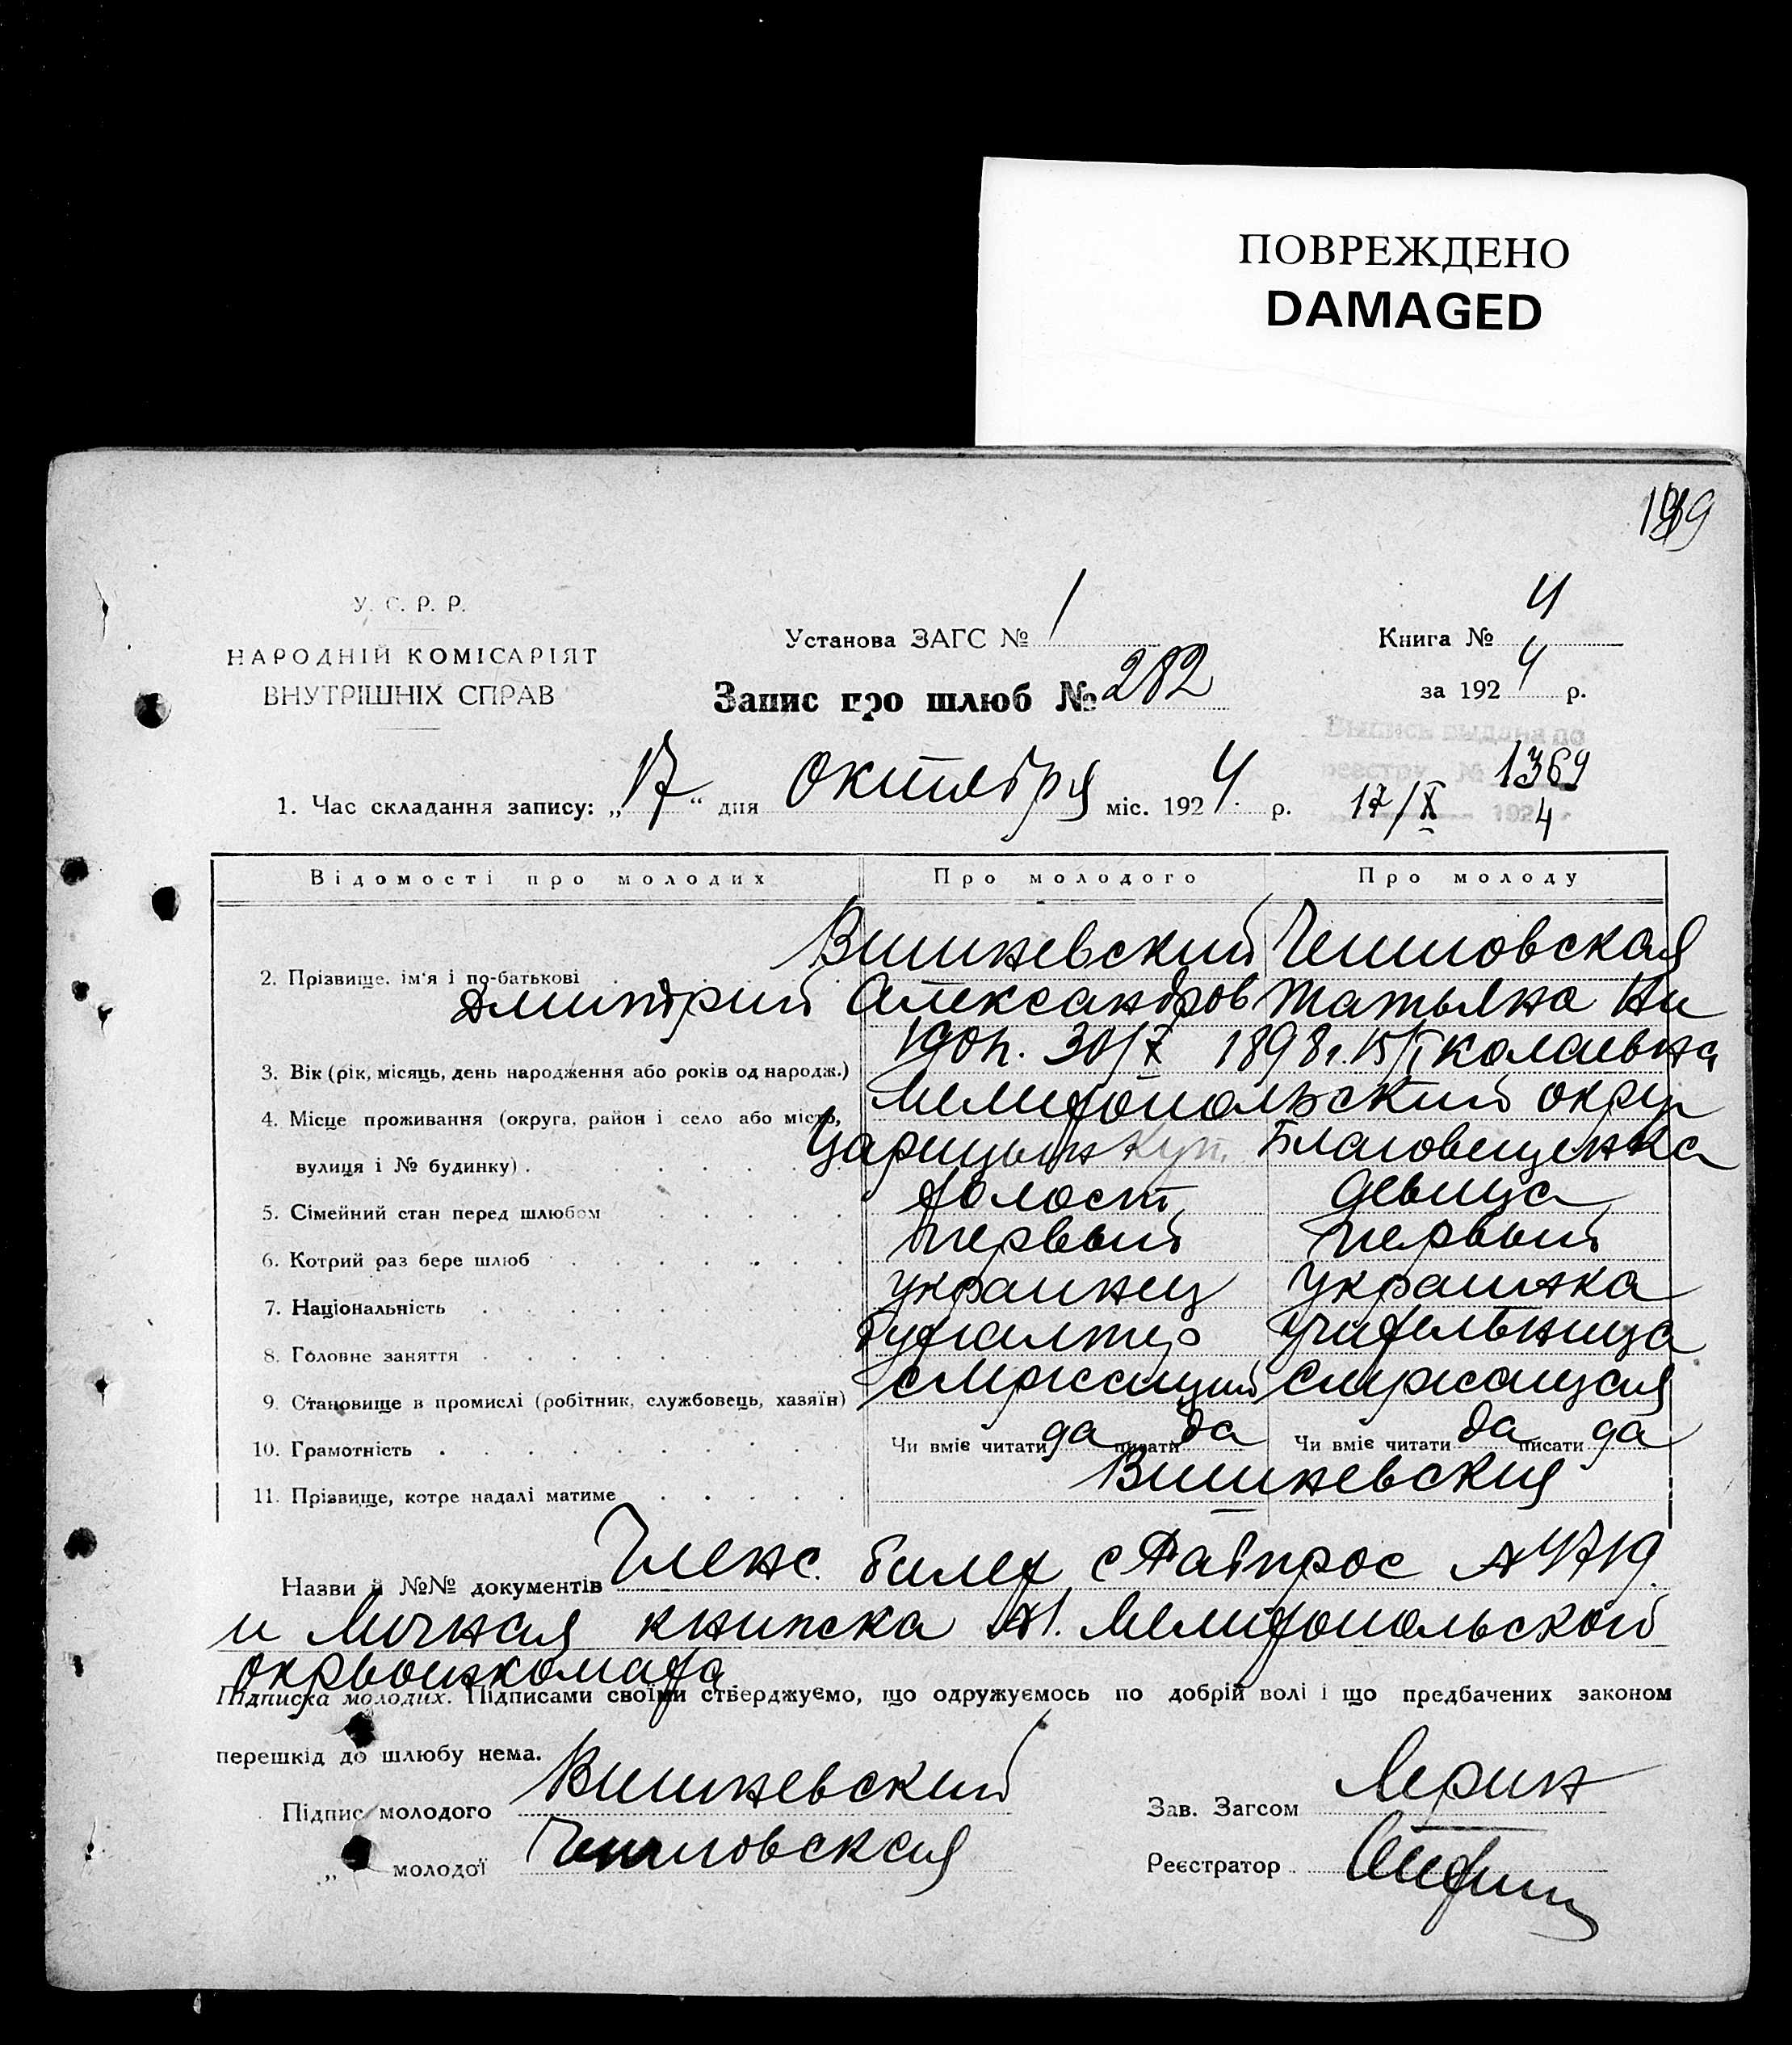 ПОВРЕЖДЕНО
DAMAGED
У. С. Р. Р.
НАРОДНІЙ КОМІСАРІЯТ
ВНУТРІШНІХ СПРАВ
Установа ЗАГС № 1
Запис про шлюб № 282
Книга № 4
за 1924 р.
Выпись выдана по
реестру № 1369
17/X 1924 г
1. Час складання запису: „17“ дня октября міс. 1924. р.
Відомості про молодих Про молодого Про молоду
2. Прізвище, ім'я і по-батькові Вишневский
Дмитрий Александров
Татьяна Ни
колаевна
3. Вік (рік, місяць, день народження або років од народж.) 30/X 1898 г. 15/I
4. Місце проживання (округа, район і село або місто, Мелитопольский округ
вулиця і № будинку). Благовещенка
5. Сімейний стан перед шлюбом холост девица
6. Котрий раз бере шлюб первый первый
7. Національність украинец украинка
8. Головне заняття бухгалтер учительница
9. Становище в промислі (робітник, службовець, хазяїн) служащий служащая
10. Грамотність Чи вміє читати да писати да Чи вміє читати да писати да
11. Прізвище, котре надалі матиме Вишневския
Назви й №№ документів Членс. билет с Рабпрос № 4719
и личная книжка №1. Мелитопольской
окрвоенкомата
Підписка молодих. Підписами своїми стверджуємо, що одружуємось по добрій волі і що предбачених законом
перешкід до шлюбу нема.
Підпис молодого Вишневский
„ молодої
Зав. Загсом
Реєстратор